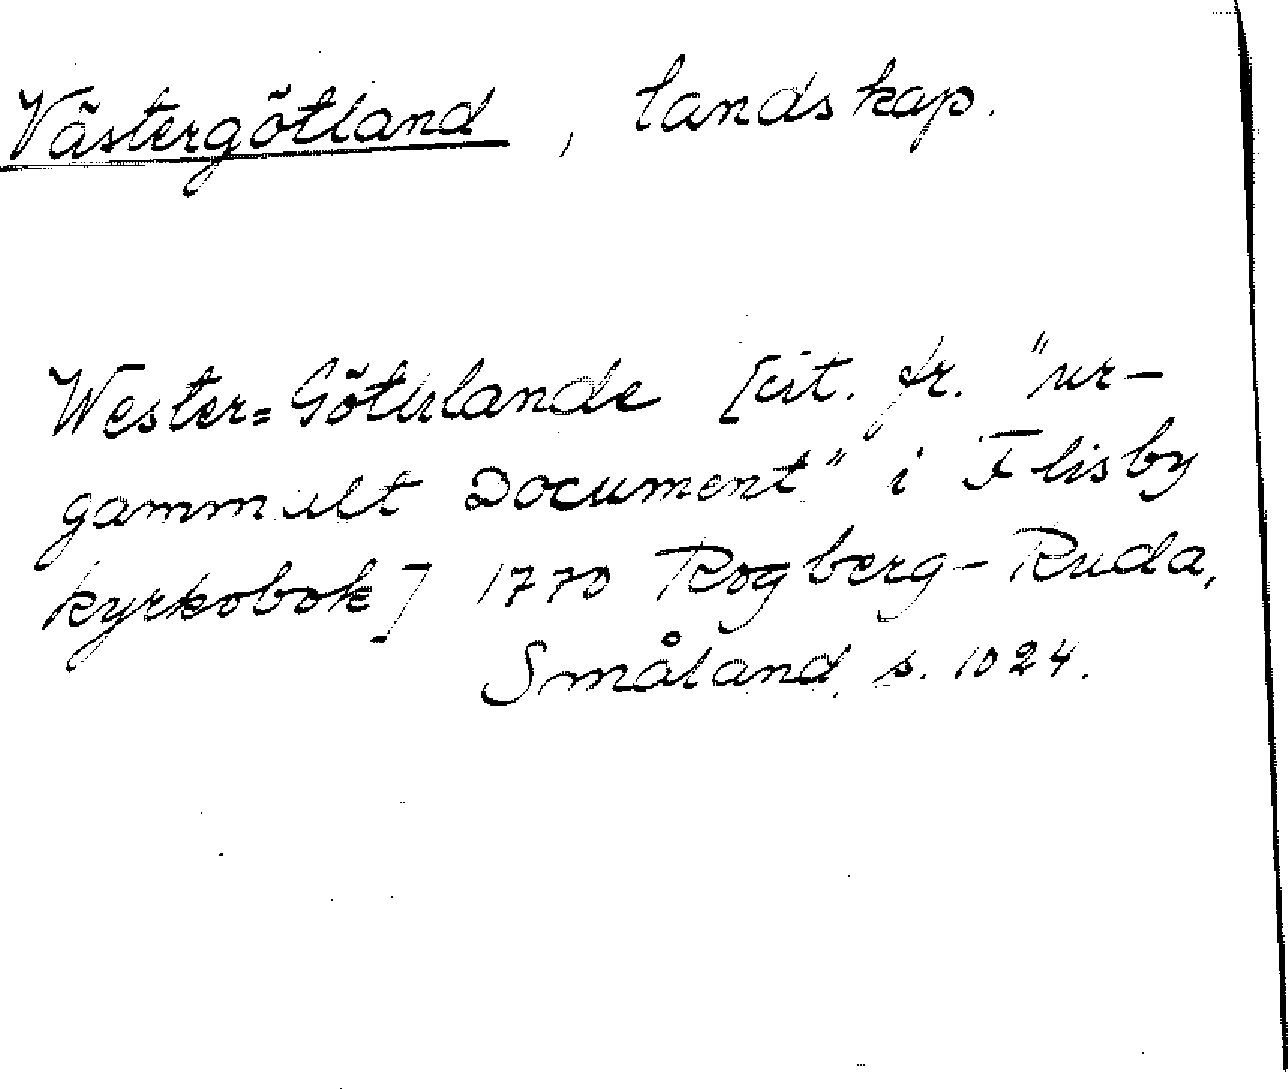 Västergötland, landskap.
Wester=Götherlande [cit. fr. "ur-
gammult Document" i Flisby
kyrkobok] 1770 Rogberg-Ruda,
Småland, s. 1024.